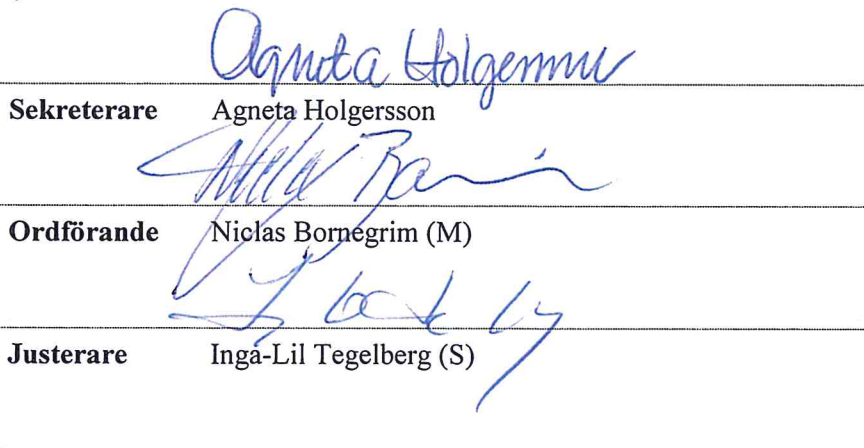 Agneta Holgersson
Sekreterare Agneta Holgersson
Ordförande Niclas Bornegrim (M)
Justerare Inga-Lil Tegelberg (S)